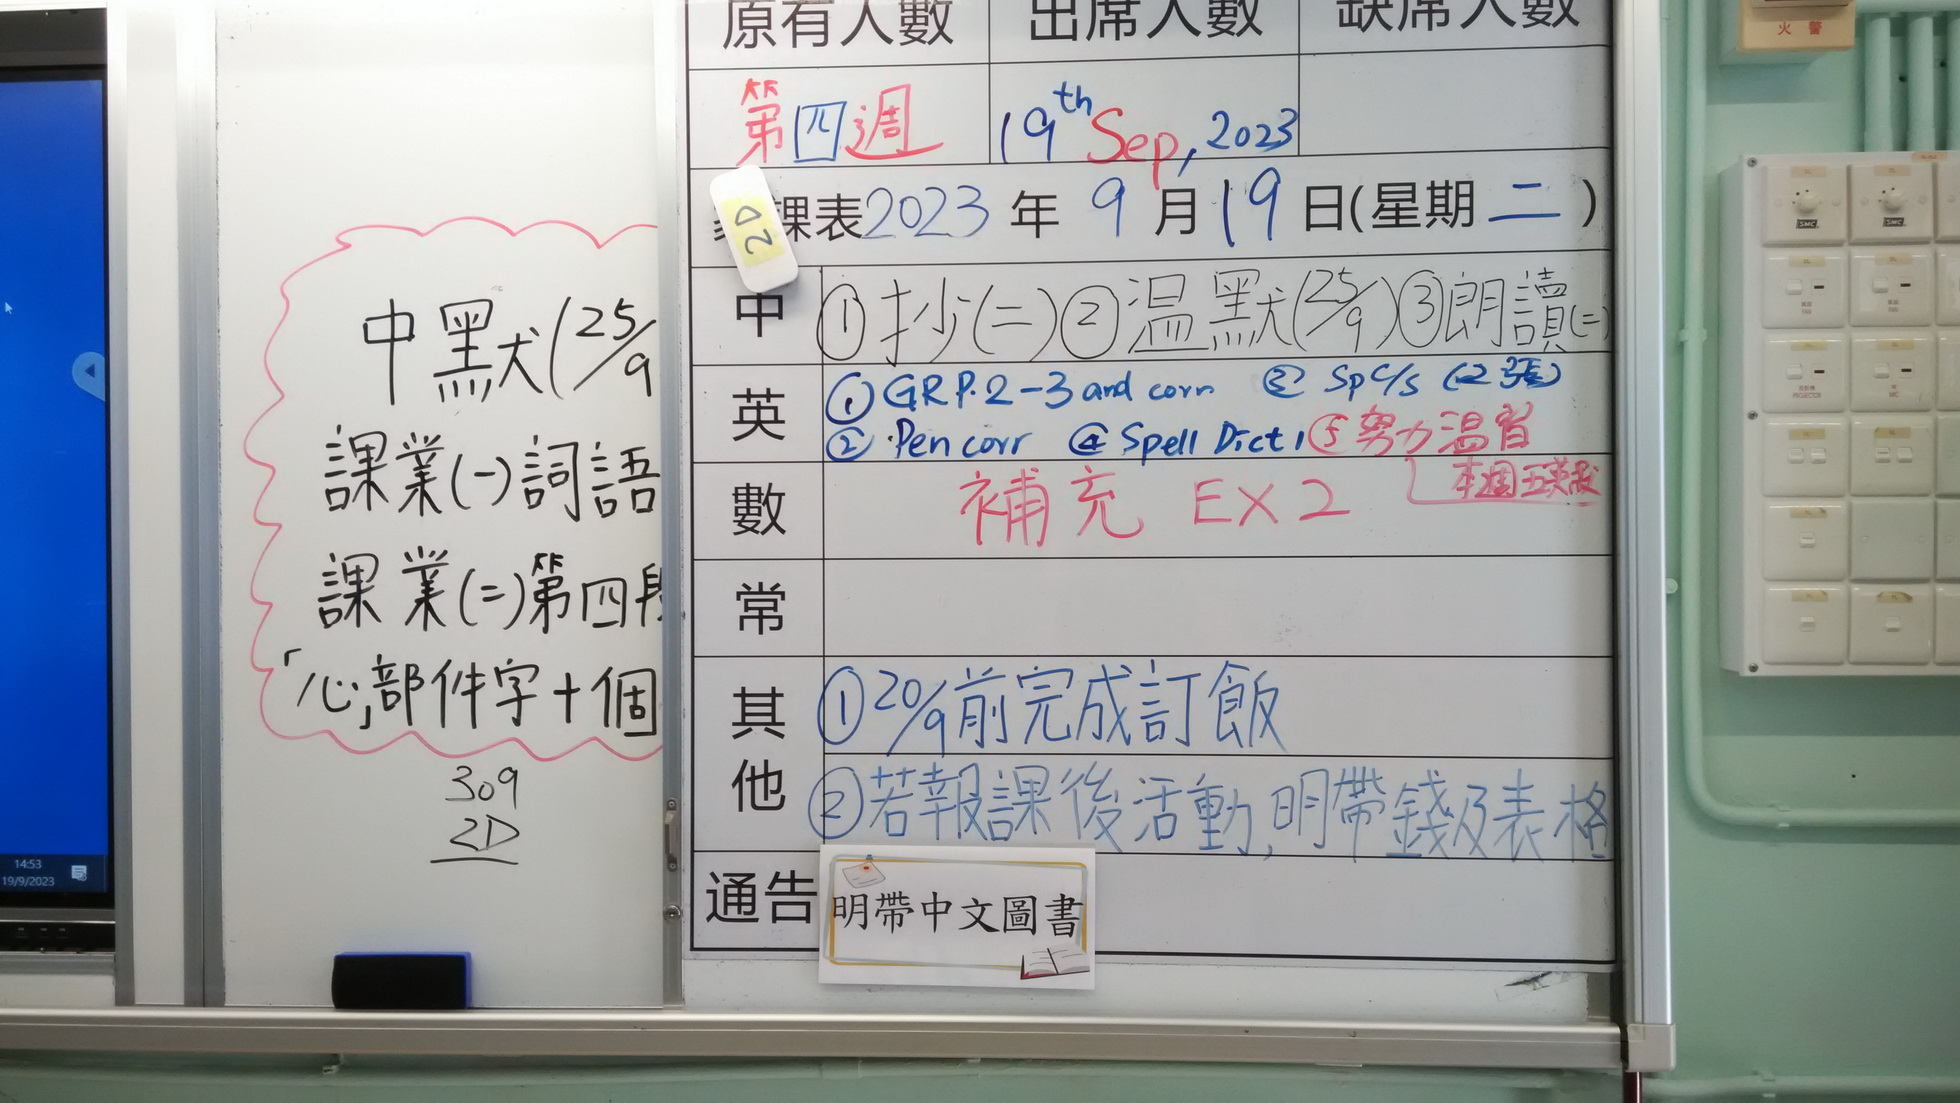 14:53
19/9/2023
中默(25/9
課業(一)詞語
課業(二)第四段
「心」部件字十個
309
2D
原有人數 出席人數 缺席人數
第四週 19th Sep, 2023
課表2023年9月19日(星期二)
2D
中 ①抄(二)②温默(25/9)③朗讀(二)
英 ① GR P.2-3 and corr ③ Sp C/S (2張)
② Pen corr ④ Spell Dict 1 ⑤努力温習
本週五英默
數 補充 EX 2
常
其他 ①20/9前完成訂飯
②若報課後活動,明帶錢及表格
通告 明帶中文圖書
火警
SMC
SMC